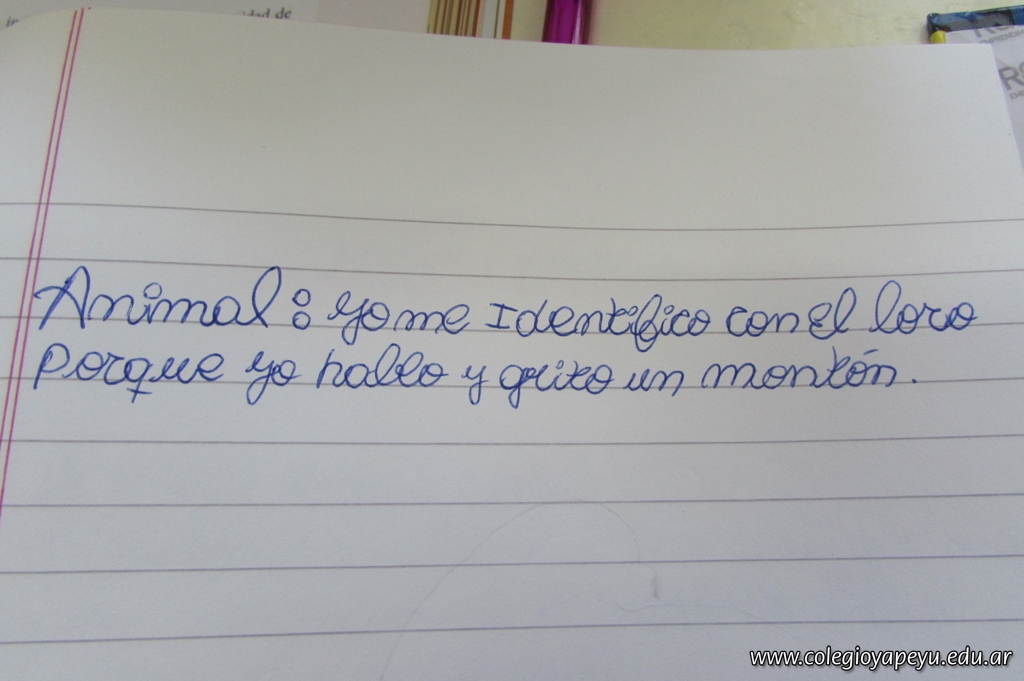 idad de
Animal: yo me Identifico con el loro
Porque yo hablo y grito un montón.
www.colegioyapeyu.edu.ar